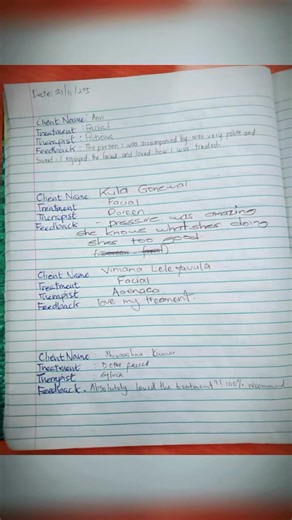 Date: 21/11/25
Client Name: Ani
Treatment: Facial
Therapist:
Feedback: The person i was accompanied by was very polite and
Sweet. I enjoyed the facial and loved how I was treated.
Client Name Kula Gonewai
Treatment Facial
Therapist Doreen
Feedback - pressure was amazing
she knows what shes doing
shes too good
Client Name Viniana Leleyavula
Treatment Facial
Therapist Asenaca
Feedback love my treament.
Client Name Kumar
Treatment :
Therapist
Feedback. Absolutely loved the treatment 100% recommend